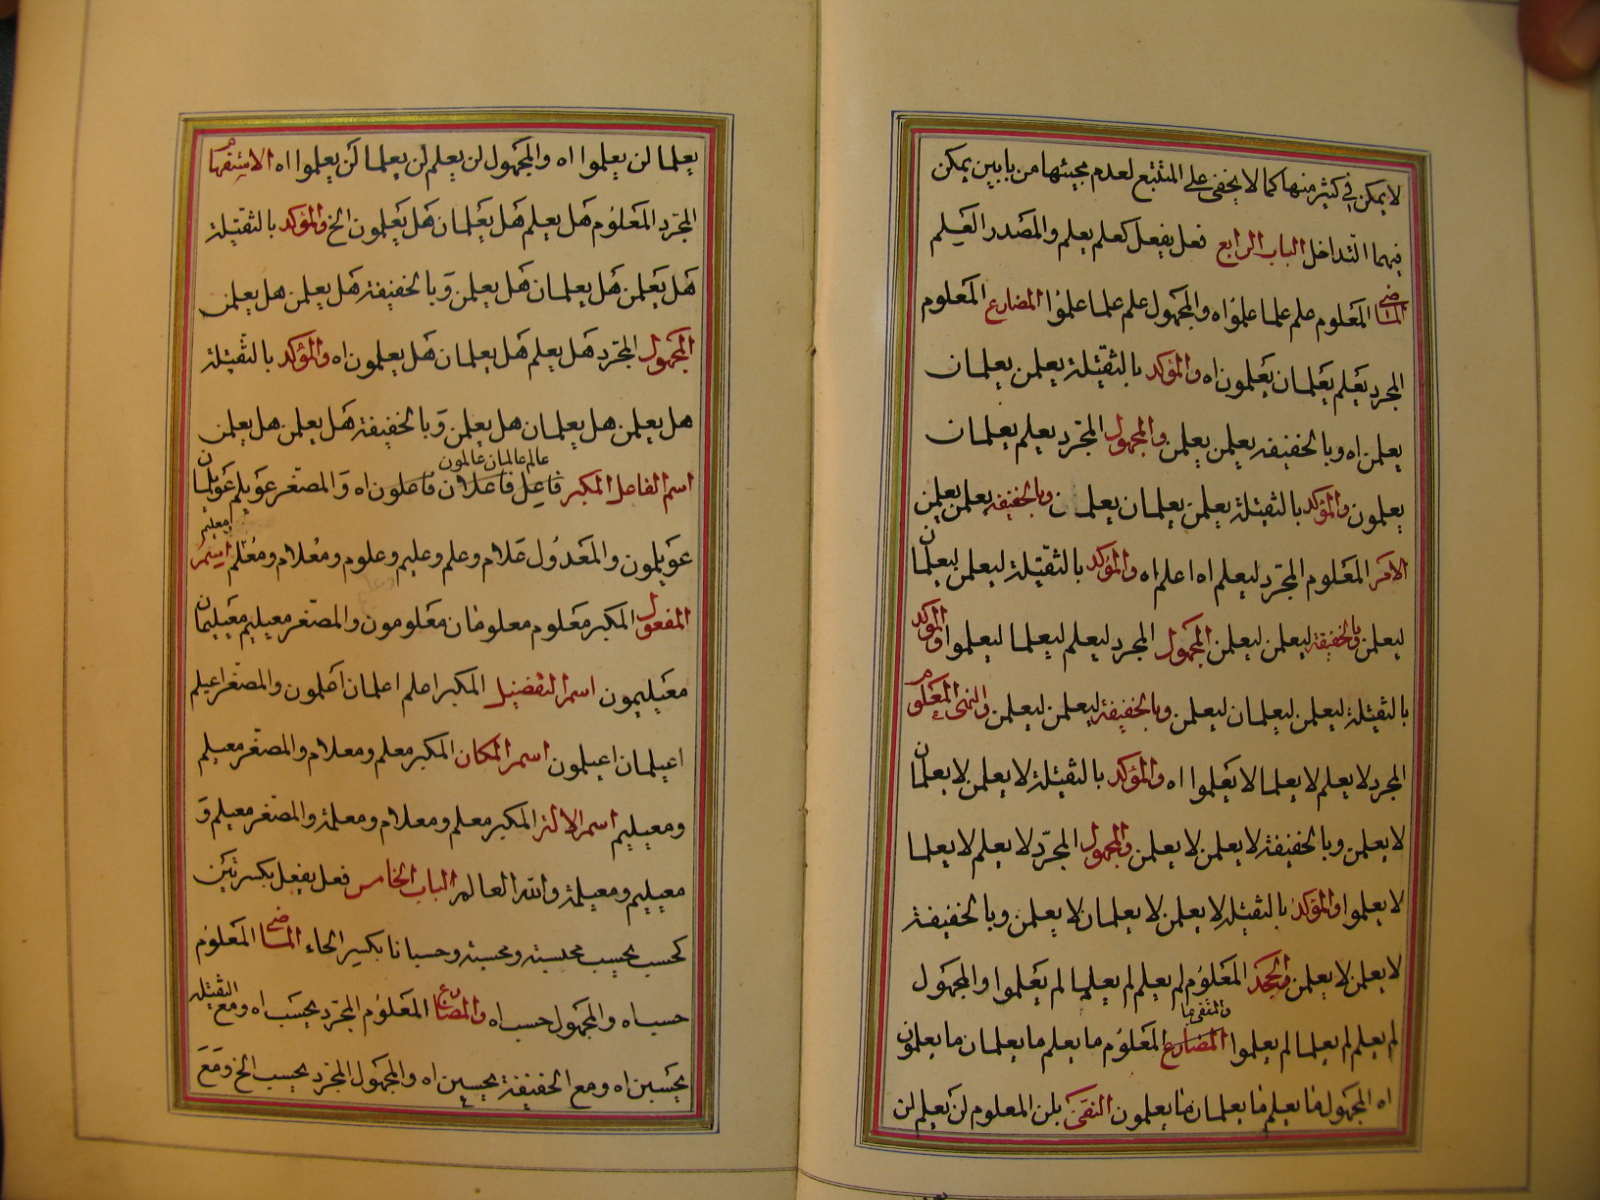 لا يمكن في كثير منها كما لا يخفى على المتتبع لعدم مجيئها من بابين يمكن
فيهما التداخل الباب الرابع فعل يفعل كعلم يعلم والمصدر العلم
الماضي المعلوم علم علما علموا اه والمجهول علم علما علموا المضارع المعلوم
المجرد يعلم يعلمان يعلمون اه والمؤكد بالثقيلة يعلمن يعلمان
يعلمن اه وبالخفيفة يعلمن يعلمن والمجهول المجرد يعلم يعلمان
يعلمون والمؤكد بالثقيلة يعلمن يعلمان يعلمن وبالخفيفة يعلمن يعلمن
الامر المعلوم المجرد ليعلم اه اعلم اه والمؤكد بالثقيلة ليعلمن ليعلمان
ليعلمن وبالخفيفة ليعلمن ليعلمن المجهول المجرد ليعلم ليعلما ليعلموا والمؤكد
بالثقيلة ليعلمن ليعلمان ليعلمن وبالخفيفة ليعلمن ليعلمن والنهي المعلوم
المجرد لا يعلم لا يعلما لا يعلموا اه والمؤكد بالثقيلة لا يعلمن لا يعلمان
لا يعلمن وبالخفيفة لا يعلمن لا يعلمن والمجهول المجرد لا يعلم لا يعلما
لا يعلموا والمؤكد بالثقيلة لا يعلمن لا يعلمان لا يعلمن وبالخفيفة
لا يعلمن لا يعلمن والجحد المعلوم لم يعلم لم يعلما لم يعلموا والمجهول
لم يعلم لم يعلما لم يعلموا والمنفي بما المضارع المعلوم ما يعلم ما يعلمان ما يعلمون
اه المجهول ما يعلم ما يعلمان ما يعلمون النفي بلن المعلوم لن يعلم لن
يعلما لن يعلموا اه والمجهول لن يعلم لن يعلما لن يعلموا اه الاستفهام
المجرد المعلوم هل يعلم هل يعلمان هل يعلمون الخ والمؤكد بالثقيلة
هل يعلمن هل يعلمان هل يعلمن وبالخفيفة هل يعلمن هل يعلمن
المجهول المجرد هل يعلم هل يعلمان هل يعلمون اه والمؤكد بالثقيلة
هل يعلمن هل يعلمان هل يعلمن وبالخفيفة هل يعلمن هل يعلمن
عالم عالمان عالمون
اسم الفاعل المكبر فاعل فاعلان فاعلون اه والمصغر عويلم عويلمان
عويلمون والمعدول علام وعلم وعليم وعلوم ومعلام ومعلم ومعليم اسم
المفعول المكبر معلوم معلومان معلومون والمصغر معيليم معيليمان
معيليمون اسم التفضيل المكبر اعلم اعلمان اعلمون والمصغر اعيلم
اعيلمان اعيلمون اسم المكان المكبر معلم ومعلام والمصغر معيلم
ومعيليم اسم الالة المكبر معلم ومعلام ومعلمة والمصغر معيلم و
معيليم ومعيلمة والله العالم الباب الخامس فعل يفعل بكسرتين
كحسب يحسب محسبة ومحسبة وحسبانا بكسر الحاء الماضي المعلوم
حسب اه والمجهول حسب اه والمضارع المعلوم المجرد يحسب اه ومع الثقيلة
يحسبن اه ومع الخفيفة يحسبن اه والمجهول المجرد يحسب الخ ومع